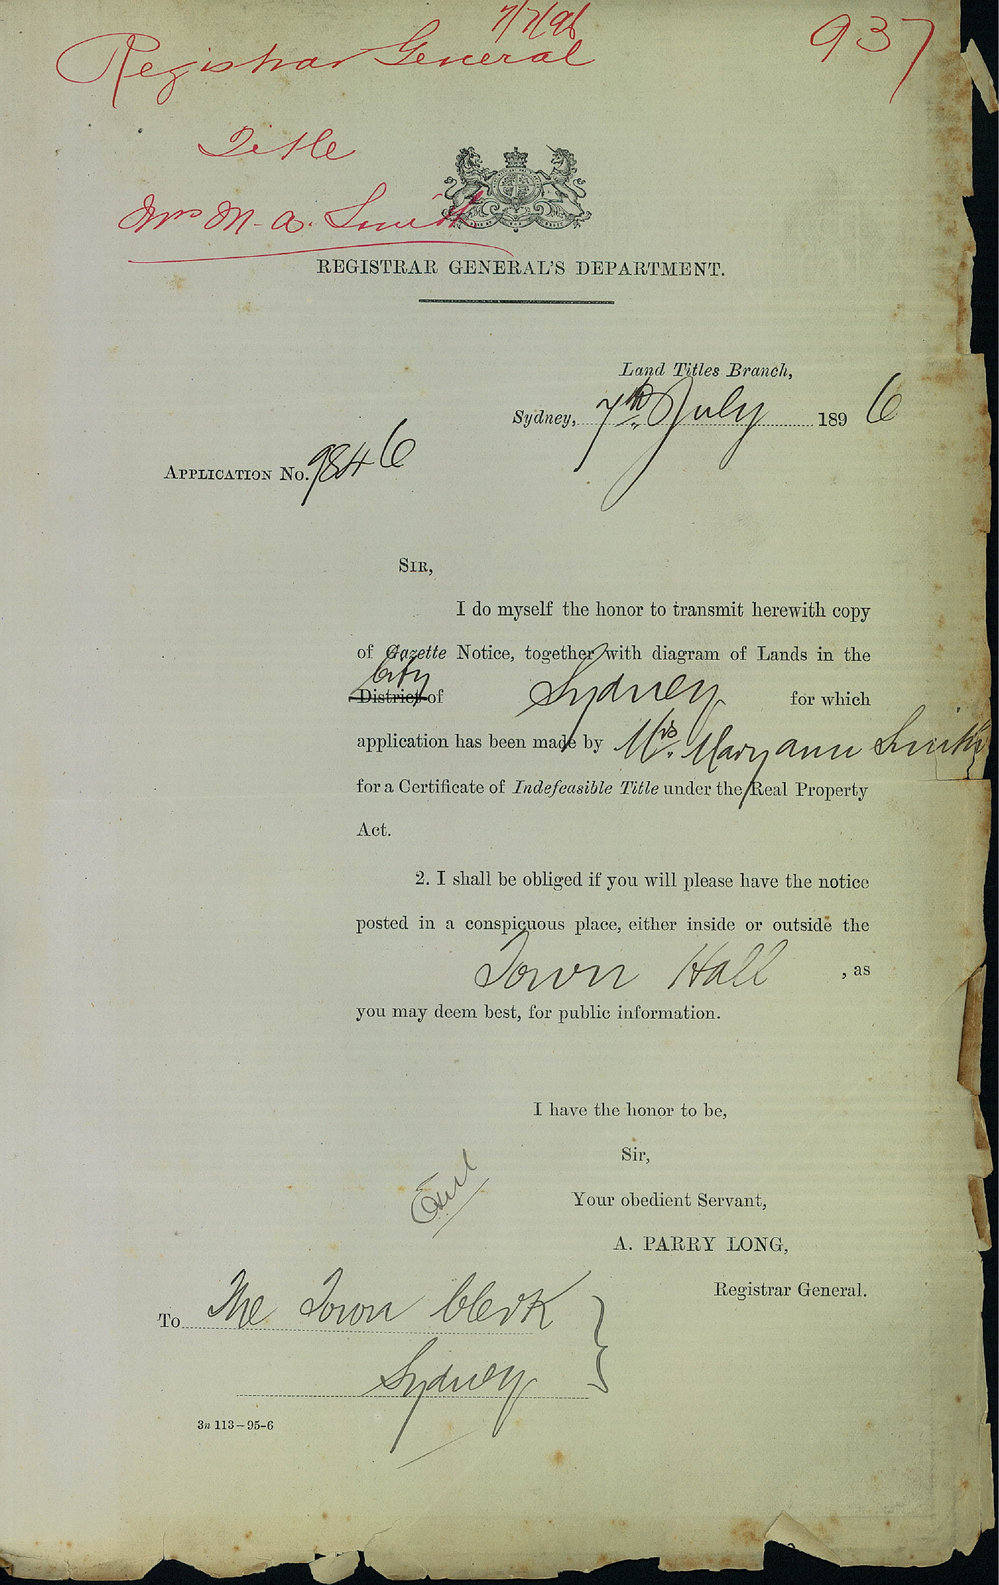 7/7/96
Registrar General
937
Title
Mrs M. A. Smith
REGISTRAR GENERAL'S DEPARTMENT.
Land Titles Branch,
Sydney, 7th July 1896
APPLICATION No. 9846
SIR,
I do myself the honor to transmit herewith copy
of Gazette Notice, together with diagram of Lands in the
City
District of Sydney for which
application has been made by Mrs. Mary ann Smith
for a Certificate of Indefeasible Title under the Real Property
Act.
2. I shall be obliged if you will please have the notice
posted in a conspicuous place, either inside or outside the
Town Hall , as
you may deem best, for public information.
I have the honor to be,
Sir,
Your obedient Servant,
A. PARRY LONG,
Registrar General.
To The Town Clerk
Sydney
3n 113-95-6